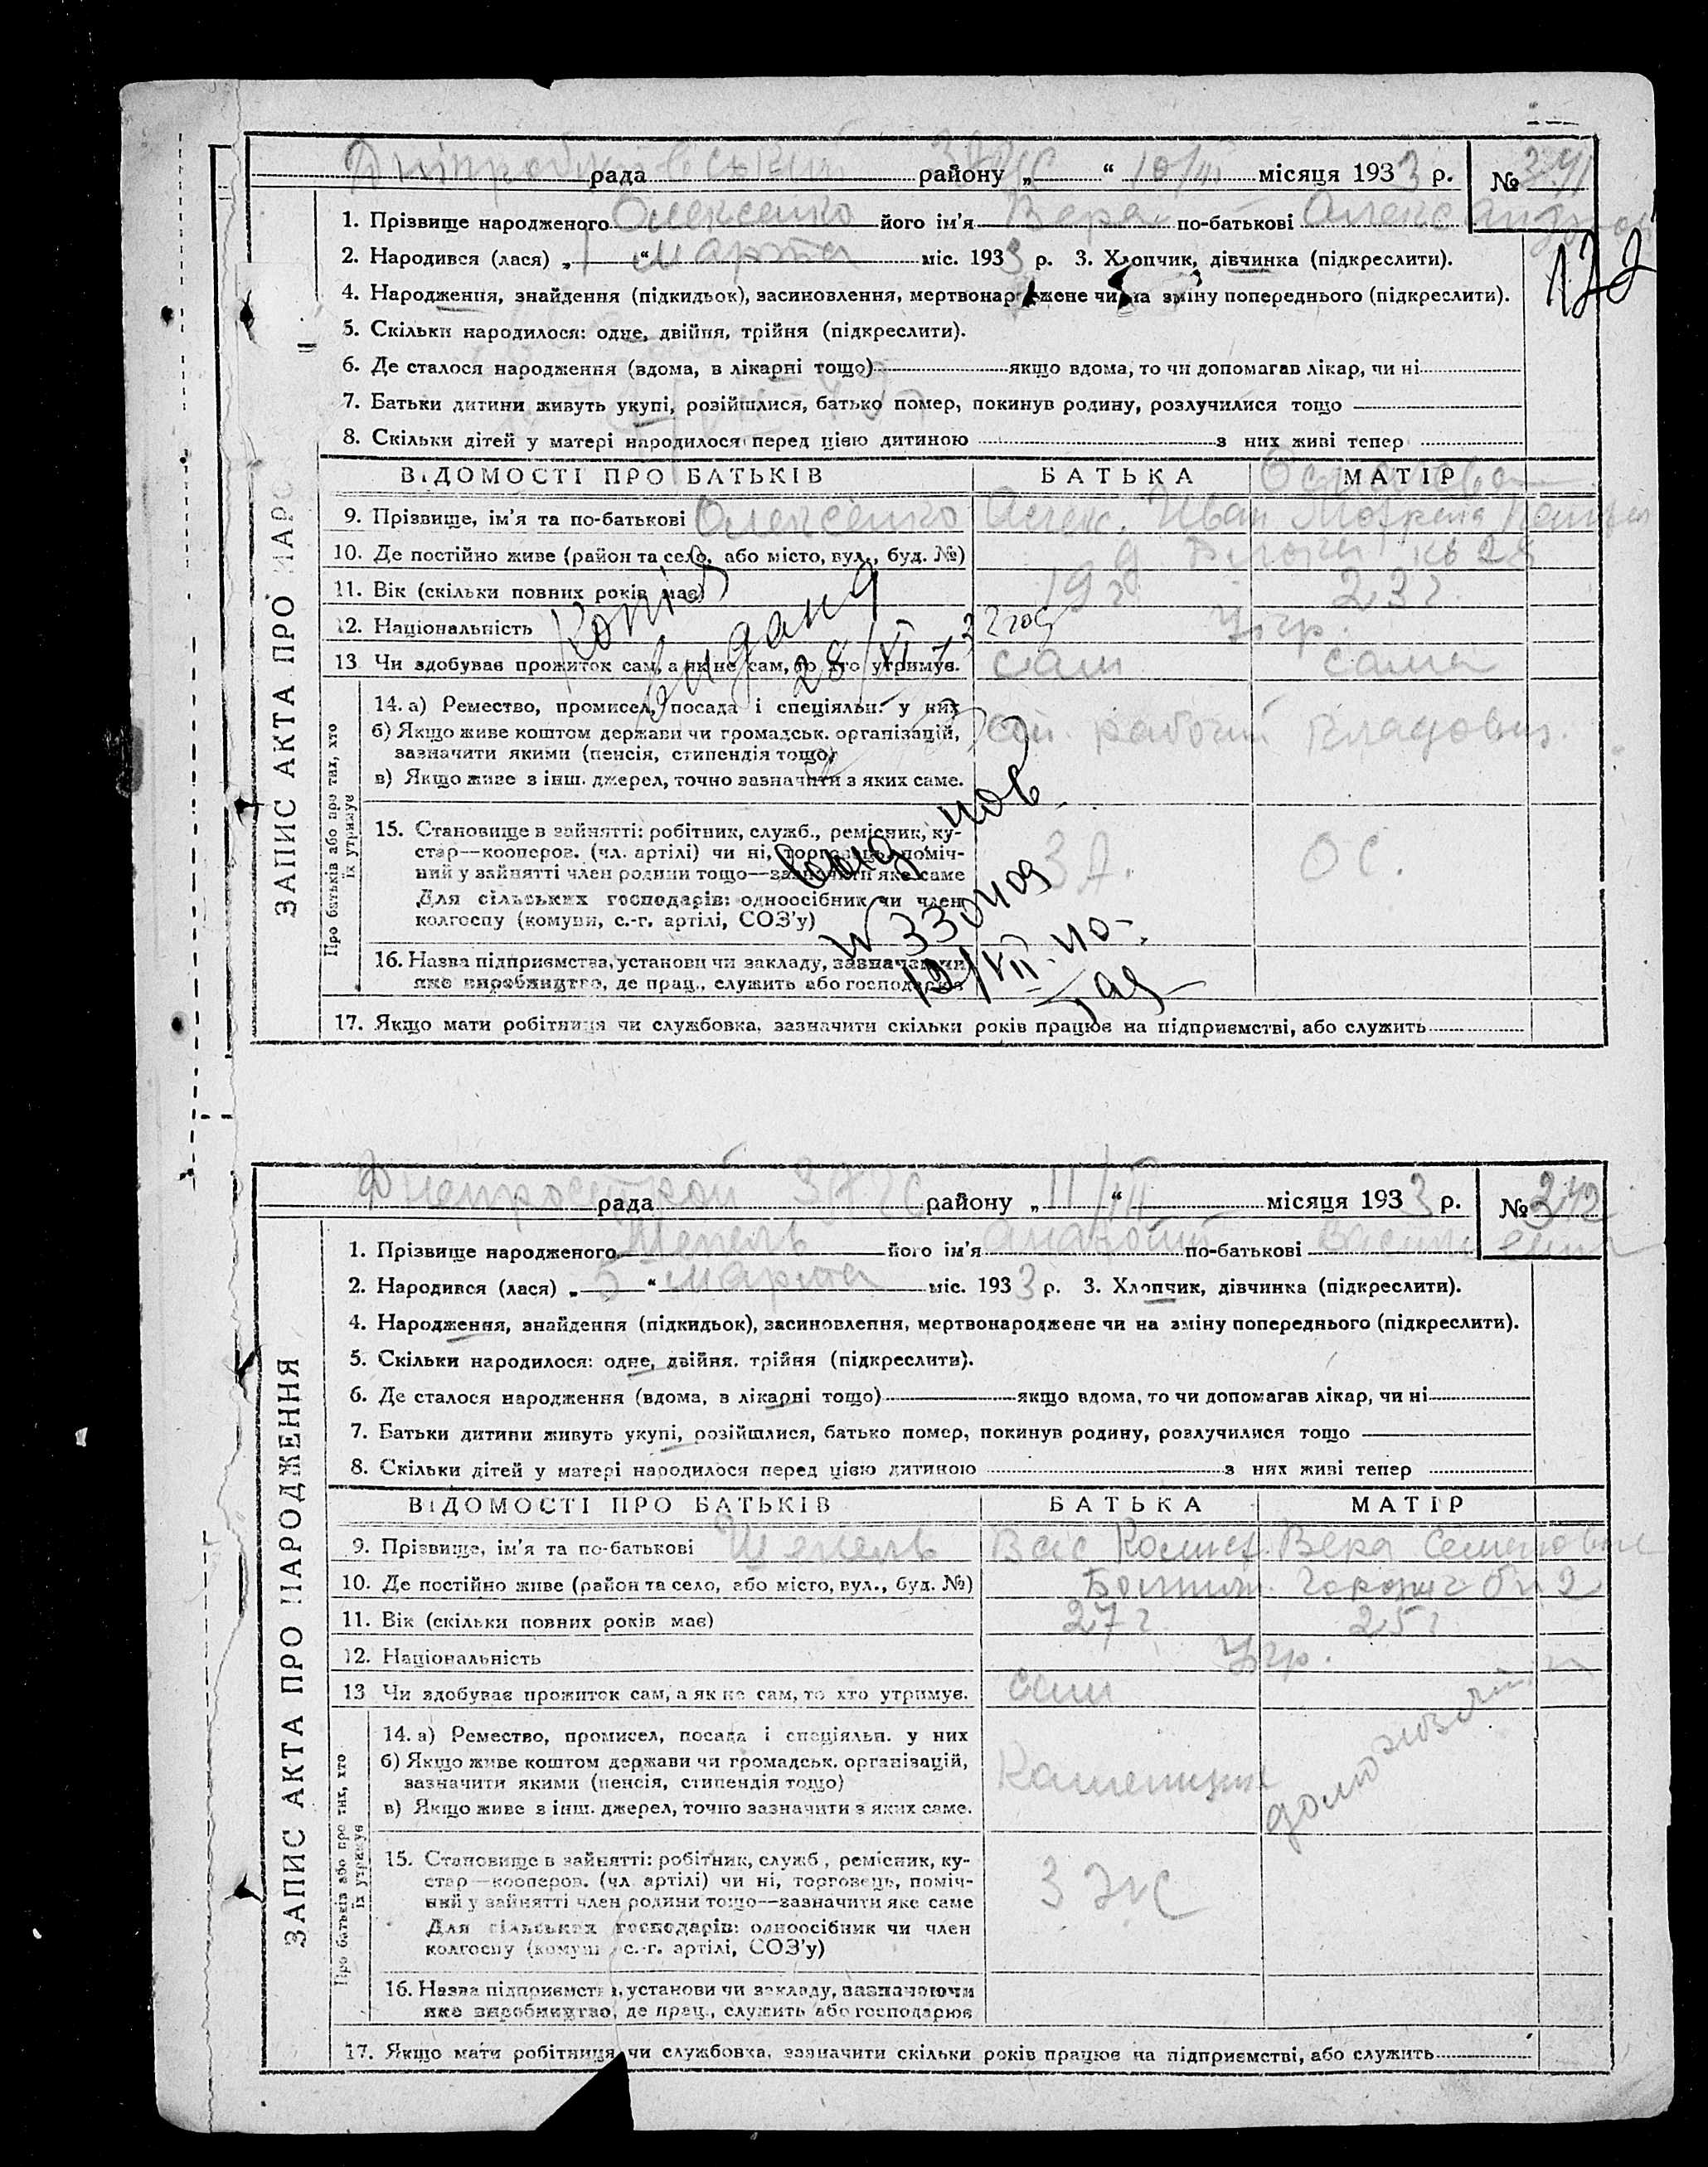 рада ЗАГС району „ “ 10/III місяця 1933 р. № 341
1. Прізвище народженого Олексенко його ім'я Вера по-батькові Александров
122
2. Народився (лася) „ 1 “ марта міс. 1933 р. 3. Хлопчик, дівчинка (підкреслити).
4. Народження, знайдення (підкидьок), засиновлення, мертвонароджене чи на зміну попереднього (підкреслити).
5. Скільки народилося: одне, двійня, трійня (підкреслити).
6. Де сталося народження (вдома, в лікарні тощо) якщо вдома, то чи допомагав лікар, чи ні
7. Батьки дитини живуть укупі, розійшлися, батько помер, покинув родину, розлучилися тощо
8. Скільки дітей у матері народилося перед цією дитиною з них живі тепер
ВІДОМОСТІ ПРО БАТЬКІВ БАТЬКА МАТІР
9. Прізвище, ім'я та по-батькові Олексенко Алек. Иван Мотрена
10. Де постійно живе (район та село, або місто, вул., буд. №) кв 28
11. Вік (скільки повних років має) 19 г. 23 г.
12. Національність Укр.
13. Чи здобуває прожиток сам, а як не сам, то хто утримує. сам сама
Копія
видана
28/VI
14. а) Ремество, промисел, посада і спеціяльн. у них
б) Якщо живе коштом держави чи громадськ. організацій,
зазначити якими (пенсія, стипендія тощо)
в) Якщо живе з інш. джерел, точно зазначити з яких саме.
рабочий Кладовщ.
15. Становище в зайнятті: робітник, служб., ремісник, ку-
стар—кооперов. (чл. артілі) чи ні, торговець, поміч-
ний у зайнятті член родини тощо—зазначити яке саме
Для сільських господарів: одноосібник чи член
колгоспу (комуни, с.-г. артілі, СОЗ'у)
ОС.
выд пов
12/VII-40
16. Назва підприємства, установи чи закладу, зазначаючи
яке виробництво, де прац., служить або господарює
17. Якщо мати робітниця чи службовка, зазначити скільки років працює на підприємстві, або служить
ЗАПИС АКТА ПРО НАРО
Про батьків або про тих, хто
їх утримує
Днепрострой ЗАГС рада району „ 11/III “ місяця 1933 р. № 342
1. Прізвище народженого Шепель його ім'я Анатолий по-батькові Василь
2. Народився (лася) „ 5 “ марта міс. 1933 р. 3. Хлопчик, дівчинка (підкреслити).
4. Народження, знайдення (підкидьок), засиновлення, мертвонароджене чи на зміну попереднього (підкреслити).
5. Скільки народилося: одне, двійня, трійня (підкреслити).
6. Де сталося народження (вдома, в лікарні тощо) якщо вдома, то чи допомагав лікар, чи ні
7. Батьки дитини живуть укупі, розійшлися, батько помер, покинув родину, розлучилися тощо
8. Скільки дітей у матері народилося перед цією дитиною з них живі тепер
ВІДОМОСТІ ПРО БАТЬКІВ БАТЬКА МАТІР
9. Прізвище, ім'я та по-батькові Шепель Вас Вера Семеновна
10. Де постійно живе (район та село, або місто, вул., буд. №)
11. Вік (скільки повних років має) 27 г. 25 г.
12. Національність Укр.
13. Чи здобуває прожиток сам, а як не сам, то хто утримує. сам
14. а) Ремество, промисел, посада і спеціяльн. у них
б) Якщо живе коштом держави чи громадськ. організацій,
зазначити якими (пенсія, стипендія тощо)
в) Якщо живе з інш. джерел, точно зазначити з яких саме.
Каменщик
15. Становище в зайнятті: робітник, служб., ремісник, ку-
стар—кооперов. (чл артілі) чи ні, торговець, поміч-
ний у зайнятті член родини тощо—зазначити яке саме
Для сільських господарів: одноосібник чи член
колгоспу (комуни с.-г. артілі, СОЗ'у)
16. Назва підприємства, установи чи закладу, зазначаючи
яке виробництво, де прац., служить або господарює
17. Якщо мати робітниця чи службовка, зазначити скільки років працює на підприємстві, або служить
ЗАПИС АКТА ПРО НАРОДЖЕННЯ
Про батьків або про тих, хто
їх утримує